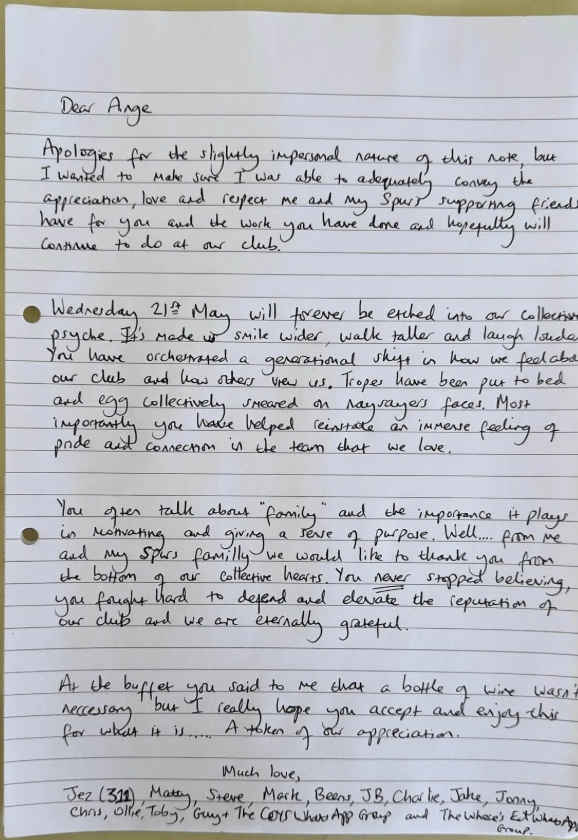 Dear Ange
Apologies for the slightly impersonal nature of this note, but
I wanted to make sure I was able to adequately convey the
appreciation, love and respect me and my Spurs supporting friends
have for you and the work you have done and hopefully will
continue to do at our club.
Wednesday 21st May will forever be etched into our collective
psyche. It's made us smile wider, walk taller and laugh loude
You have orchestrated a generational shift in how we feel abo
our club and how others view us. Tropes have been put to bed
and egg collectively smeared on naysayers faces. Most
importantly you have helped reinstate an immense feeling of
pride and connection in the team that we love.
You often talk about "family" and the importance it plays
in motivating and giving a sense of purpose. Well.... from me
and my Spurs familly we would like to thank you from
the bottom of our collective hearts. You never stopped believing,
you fought hard to defend and elevate the reputation of
our club and we are eternally grateful.
At the buffet you said to me that a bottle of wine wasn't
neccessary but I really hope you accept and enjoy this
for what it is..... A token of our appreciation.
Much love,
Jez (311), Matty, Steve, Mark, Beens, JB, Charlie, Jake, Jonny,
Chris, Ollie, Toby, Guy + The COYS WhatsApp Group and The Where's Ex WhatsApp
Group.